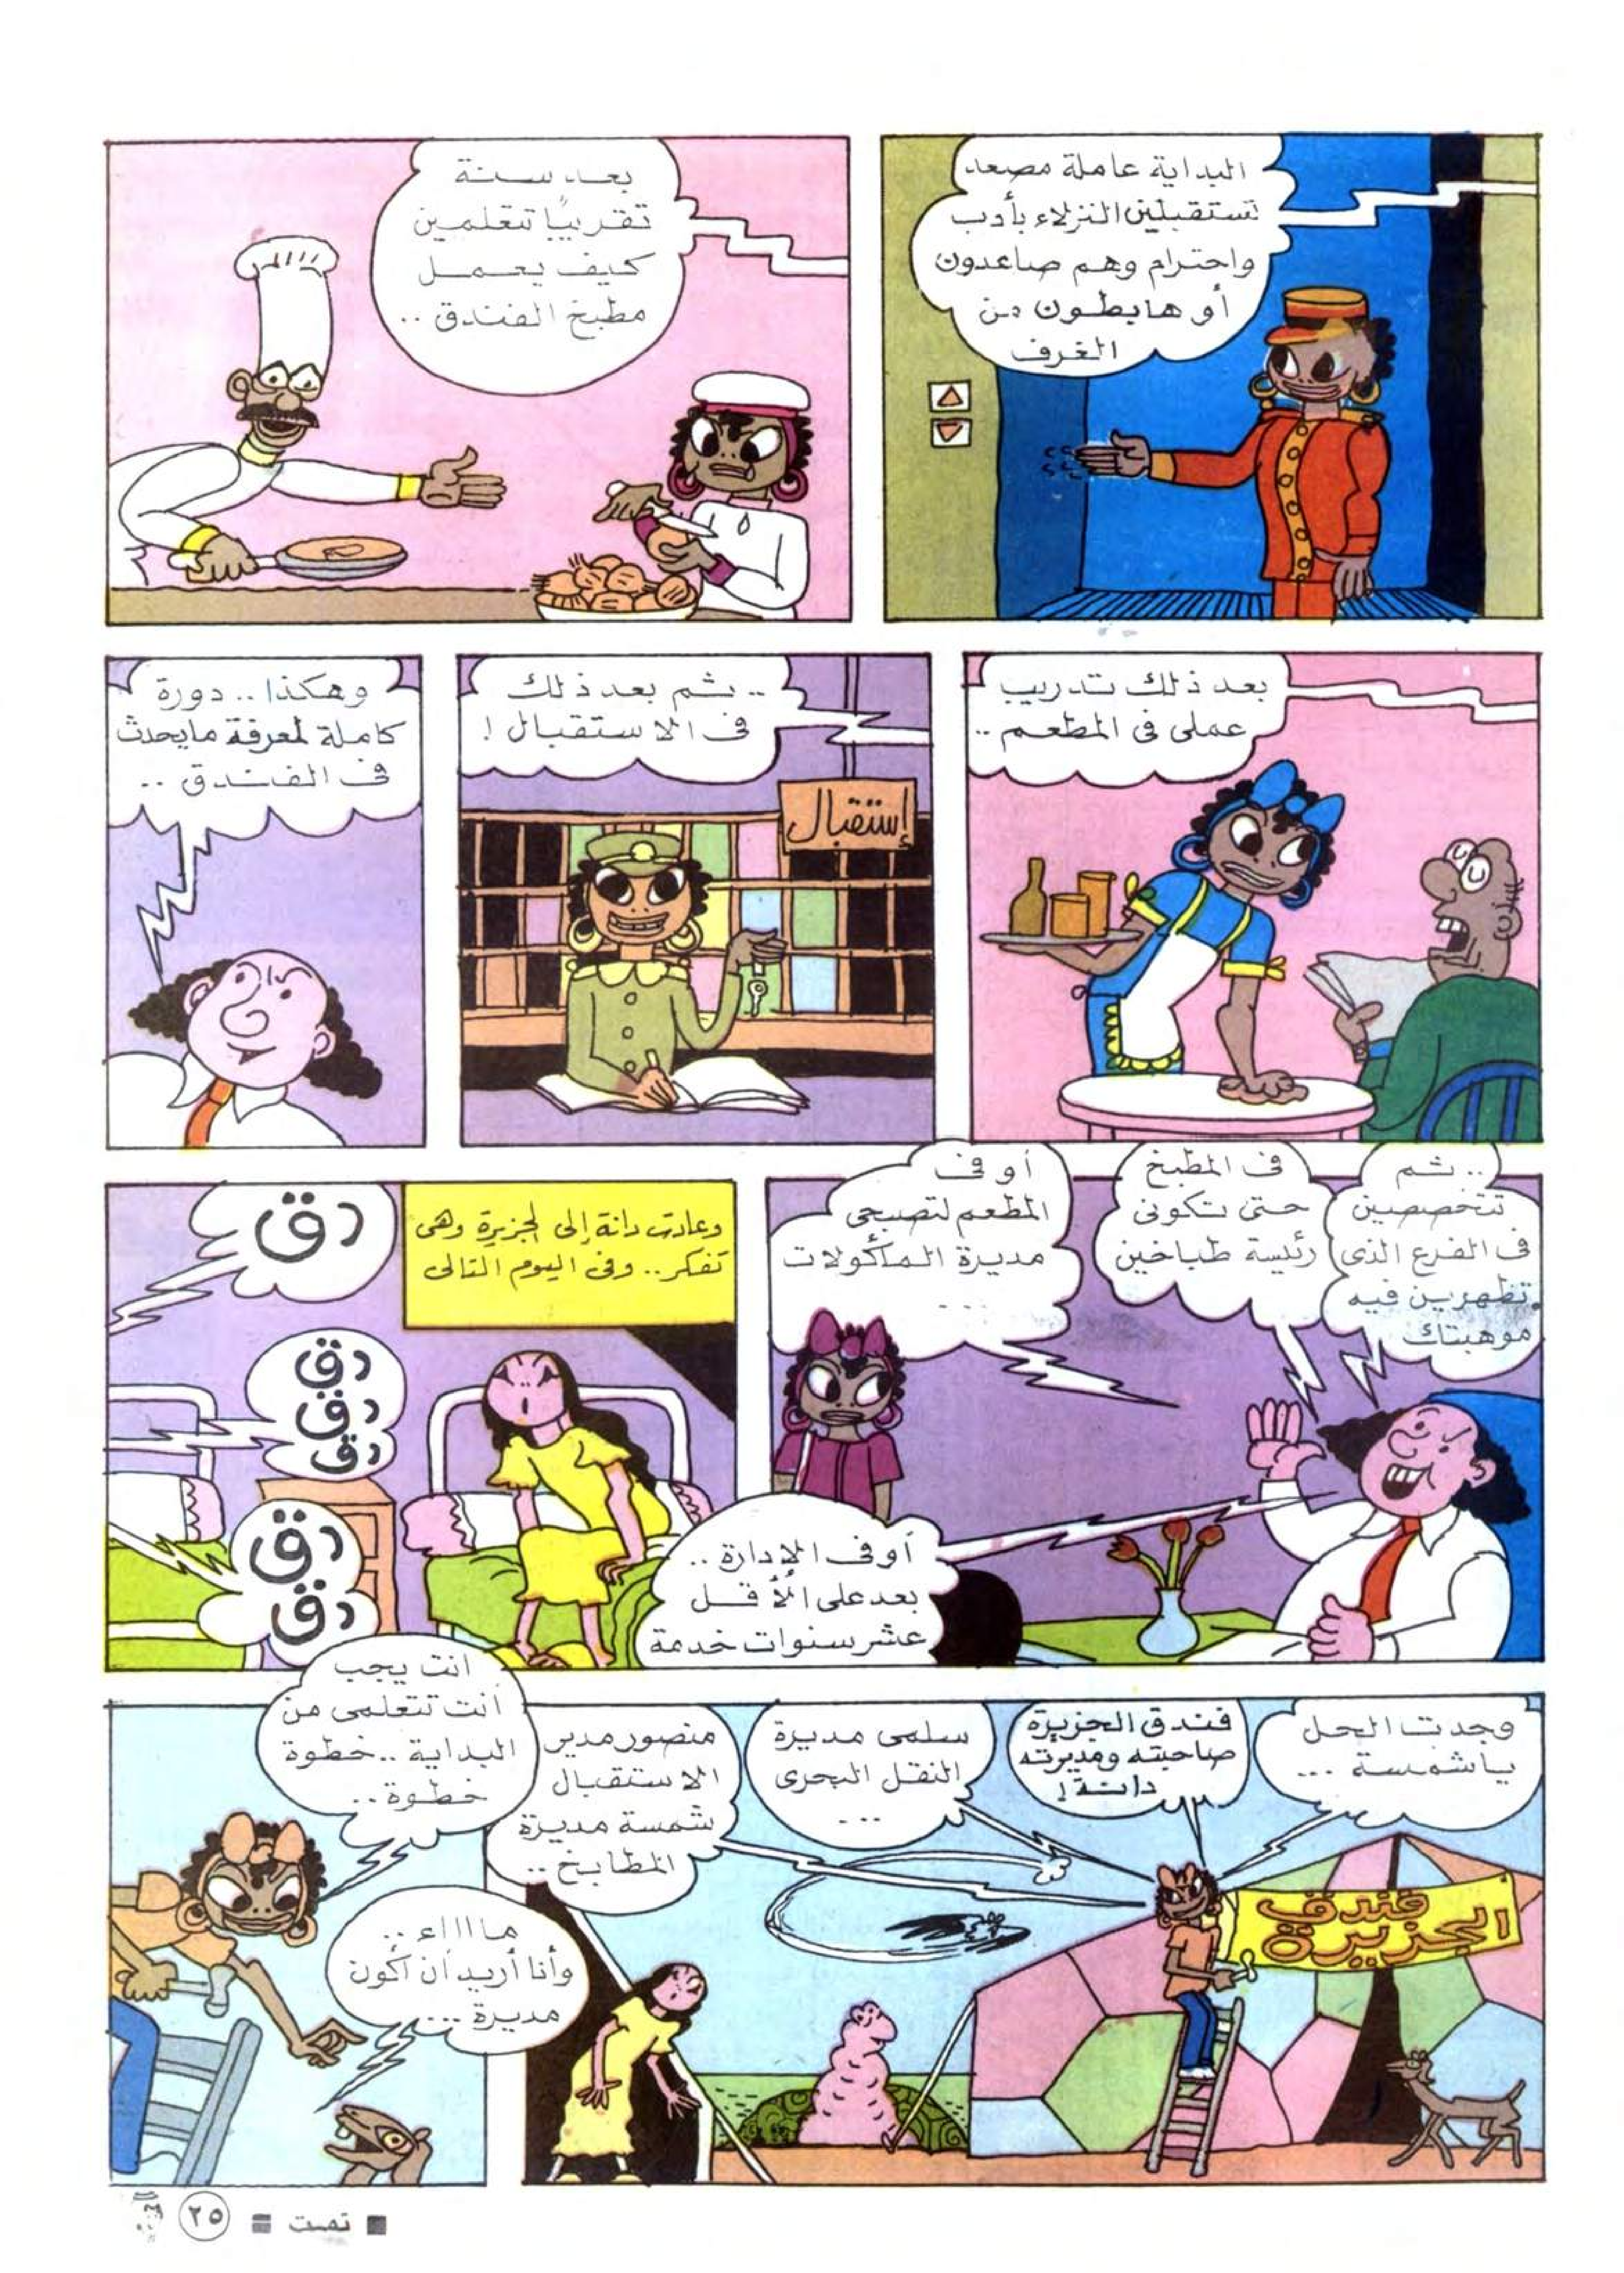 البداية عاملة مصعد
تستقبلين النزلاء بأدب
واحترام وهم صاعدون
أو هابطون من
الغرف
بعد سنة
تقريبًا تتعلمين
كيف يعمل
مطبخ الفندق ..
بعد ذلك تدريب
عملى فى المطعم ..
.. ثم بعد ذلك
فى الاستقبال !
إستقبال
وهكذا .. دورة
كاملة لمعرفة مايحدث
فى الفندق ..
.. ثم
تتخصصين
فى الفرع الذى
تظهرين فيه
موهبتك
فى المطبخ
حتى تكونى
رئيسة طباخين
أو فى
المطعم لتصبحى
مديرة المأكولات
....
أو فى الإدارة ..
بعد على الأقل
عشر سنوات خدمة
وعادت دانة إلى الجزيرة وهى
تفكر .. وفى اليوم التالى
دق
دق
دق
دق
دق
دق
وجدت الحل
يا شمسة ...
فندق الجزيرة
صاحبته ومديرته
دانة !
سلمى مديرة
النقل البحرى
...
منصور مدير
الاستقبال
شمسة مديرة
المطابخ ..
فندق
الجزيرة
أنت يجب
أن تتعلمى من
البداية .. خطوة
خطوة ..
ماااااء ..
وأنا أريد أن أكون
مديرة ...
تمت
٢٥